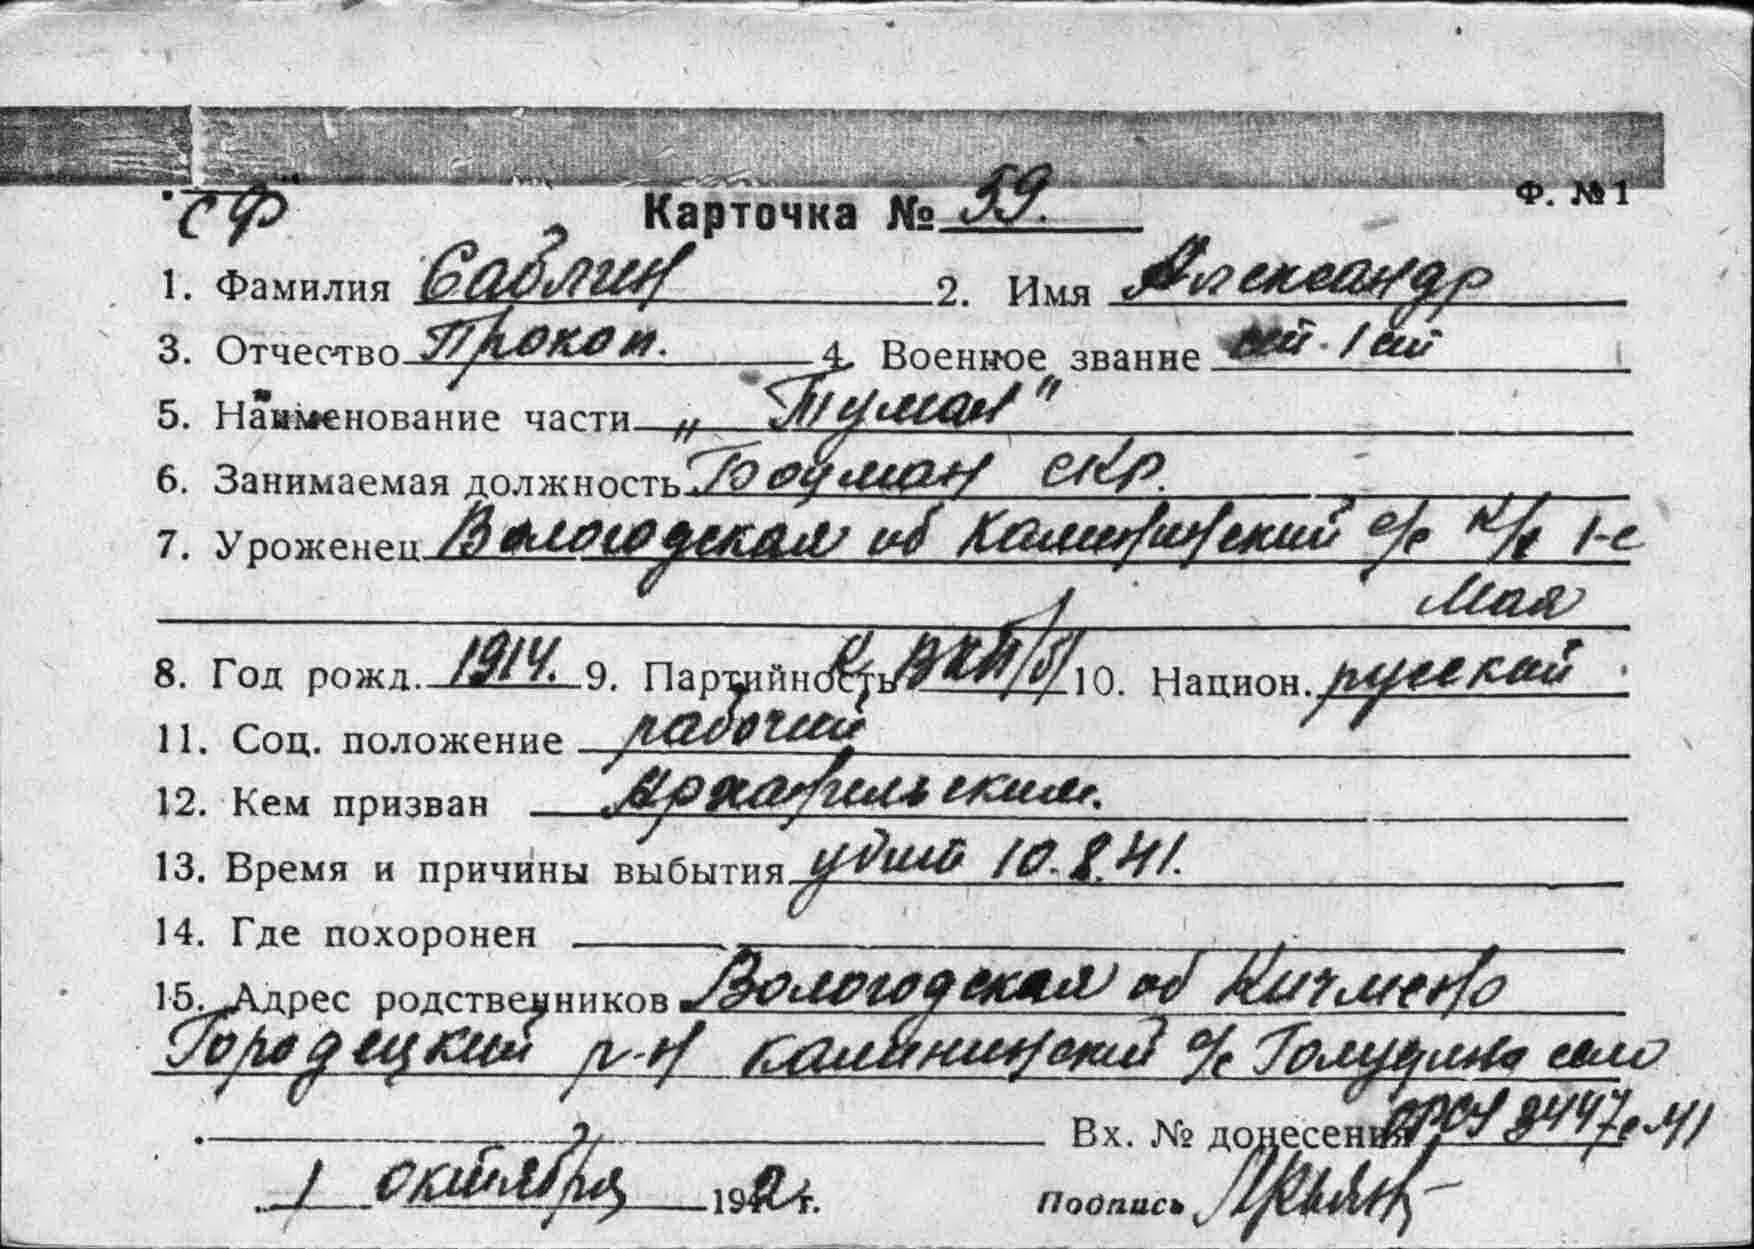 СФ Карточка № 59. Ф. №1
1. Фамилия Саблин 2. Имя Александр
3. Отчество Прокоп. 4. Военное звание ст. 1 ст
5. Наименование части „Туман"
6. Занимаемая должность Боцман скр.
7. Уроженец Вологодская об Калининский с/с к/з 1-е
Мая
8. Год рожд. 1914. 9. Партийность К ВКП/б/ 10. Национ. русский
11. Соц. положение рабочий
12. Кем призван Архангельским.
13. Время и причины выбытия убит 10.8.41.
14. Где похоронен
15. Адрес родственников Вологодская об Кичмено
Городецкий р-н Калининский с/с село
Вх. № донесения 41
1 октября 1942 г. Подпись